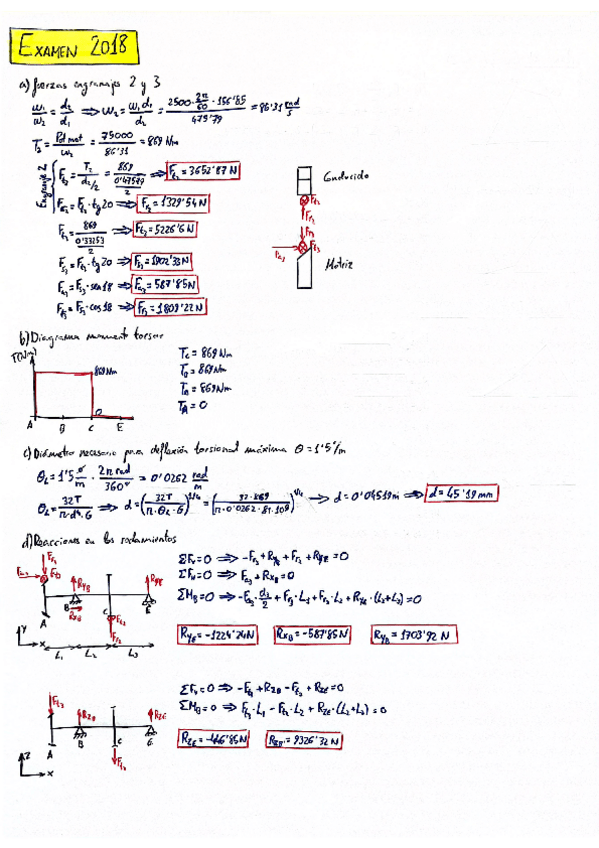 EXAMEN 2018
a) fuerzas engranajes 2 y 3
ω₁/ω₂ = d₂/d₁ ⇒ ω₂ = ω₁d₁/d₂ = 2500·2π/60·156'85 / 473'79 = 86'31 rad/s
T₂ = Pot mot/ω₂ = 75000/86'31 = 869 Nm
Engranaje 2
Ft₂ = T₂/(d₂/2) = 869/(0'47579/2) ⇒ Ft₂ = 3652'87 N
Fr₂ = Ft₂·tg20 ⇒ Fr₂ = 1329'54 N
Ft₃ = 869/(0'33253/2) ⇒ Ft₃ = 5226'6 N
Fs₃ = Ft₃·tg20 ⇒ Fs₃ = 1902'33 N
Fa₃ = Fs₃·sen18 ⇒ Fa₃ = 587'85 N
Fr₃ = Fs₃·cos18 ⇒ Fr₃ = 1809'22 N
Conducido
Ft₂
Fr₂
Fr₃
Fa₃ Ft₃
Motriz
b) Diagrama momento torsor
T(Nm)
869 Nm
0
A B C E
Tc = 869 Nm
TB = 869 Nm
TA = 0
c) Diámetro necesario para deflexión torsional máxima θ = 1'5°/m
θL = 1'5 °/m · 2π rad/360° = 0'0262 rad/m
θL = 32T/π·d⁴·G ⇒ d = (32T/π·θL·G)^1/4 = (32·869/π·0'0262·81·10⁹)^1/4 ⇒ d = 0'04519 m ⇒ d = 45'19 mm
d) Reacciones en los rodamientos
ΣFv = 0 ⇒ -Fr₃ + RyB + Fr₂ + RyE = 0
ΣFH = 0 ⇒ Fa₃ + RxB = 0
ΣMB = 0 ⇒ -Fa₃·d₃/2 + Fr₃·L₁ + Fr₂·L₂ + RyE·(L₂+L₃) = 0
RyE = -1224'24 N RxB = -587'85 N RyB = 1703'92 N
Fr₃
Fa₃ Ft₃
RyB RyE
B RxB
A C E
Ft₂
Fr₂
Y
X L₁ L₂ L₃
ΣFv = 0 ⇒ -Ft₃ + RzB - Ft₂ + RzE = 0
ΣMB = 0 ⇒ Ft₃·L₁ - Ft₂·L₂ + RzE·(L₂+L₃) = 0
RzE = -446'85 N RzB = 9326'32 N
Ft₃
RzB RzE
A B C E
Ft₂
Z
X